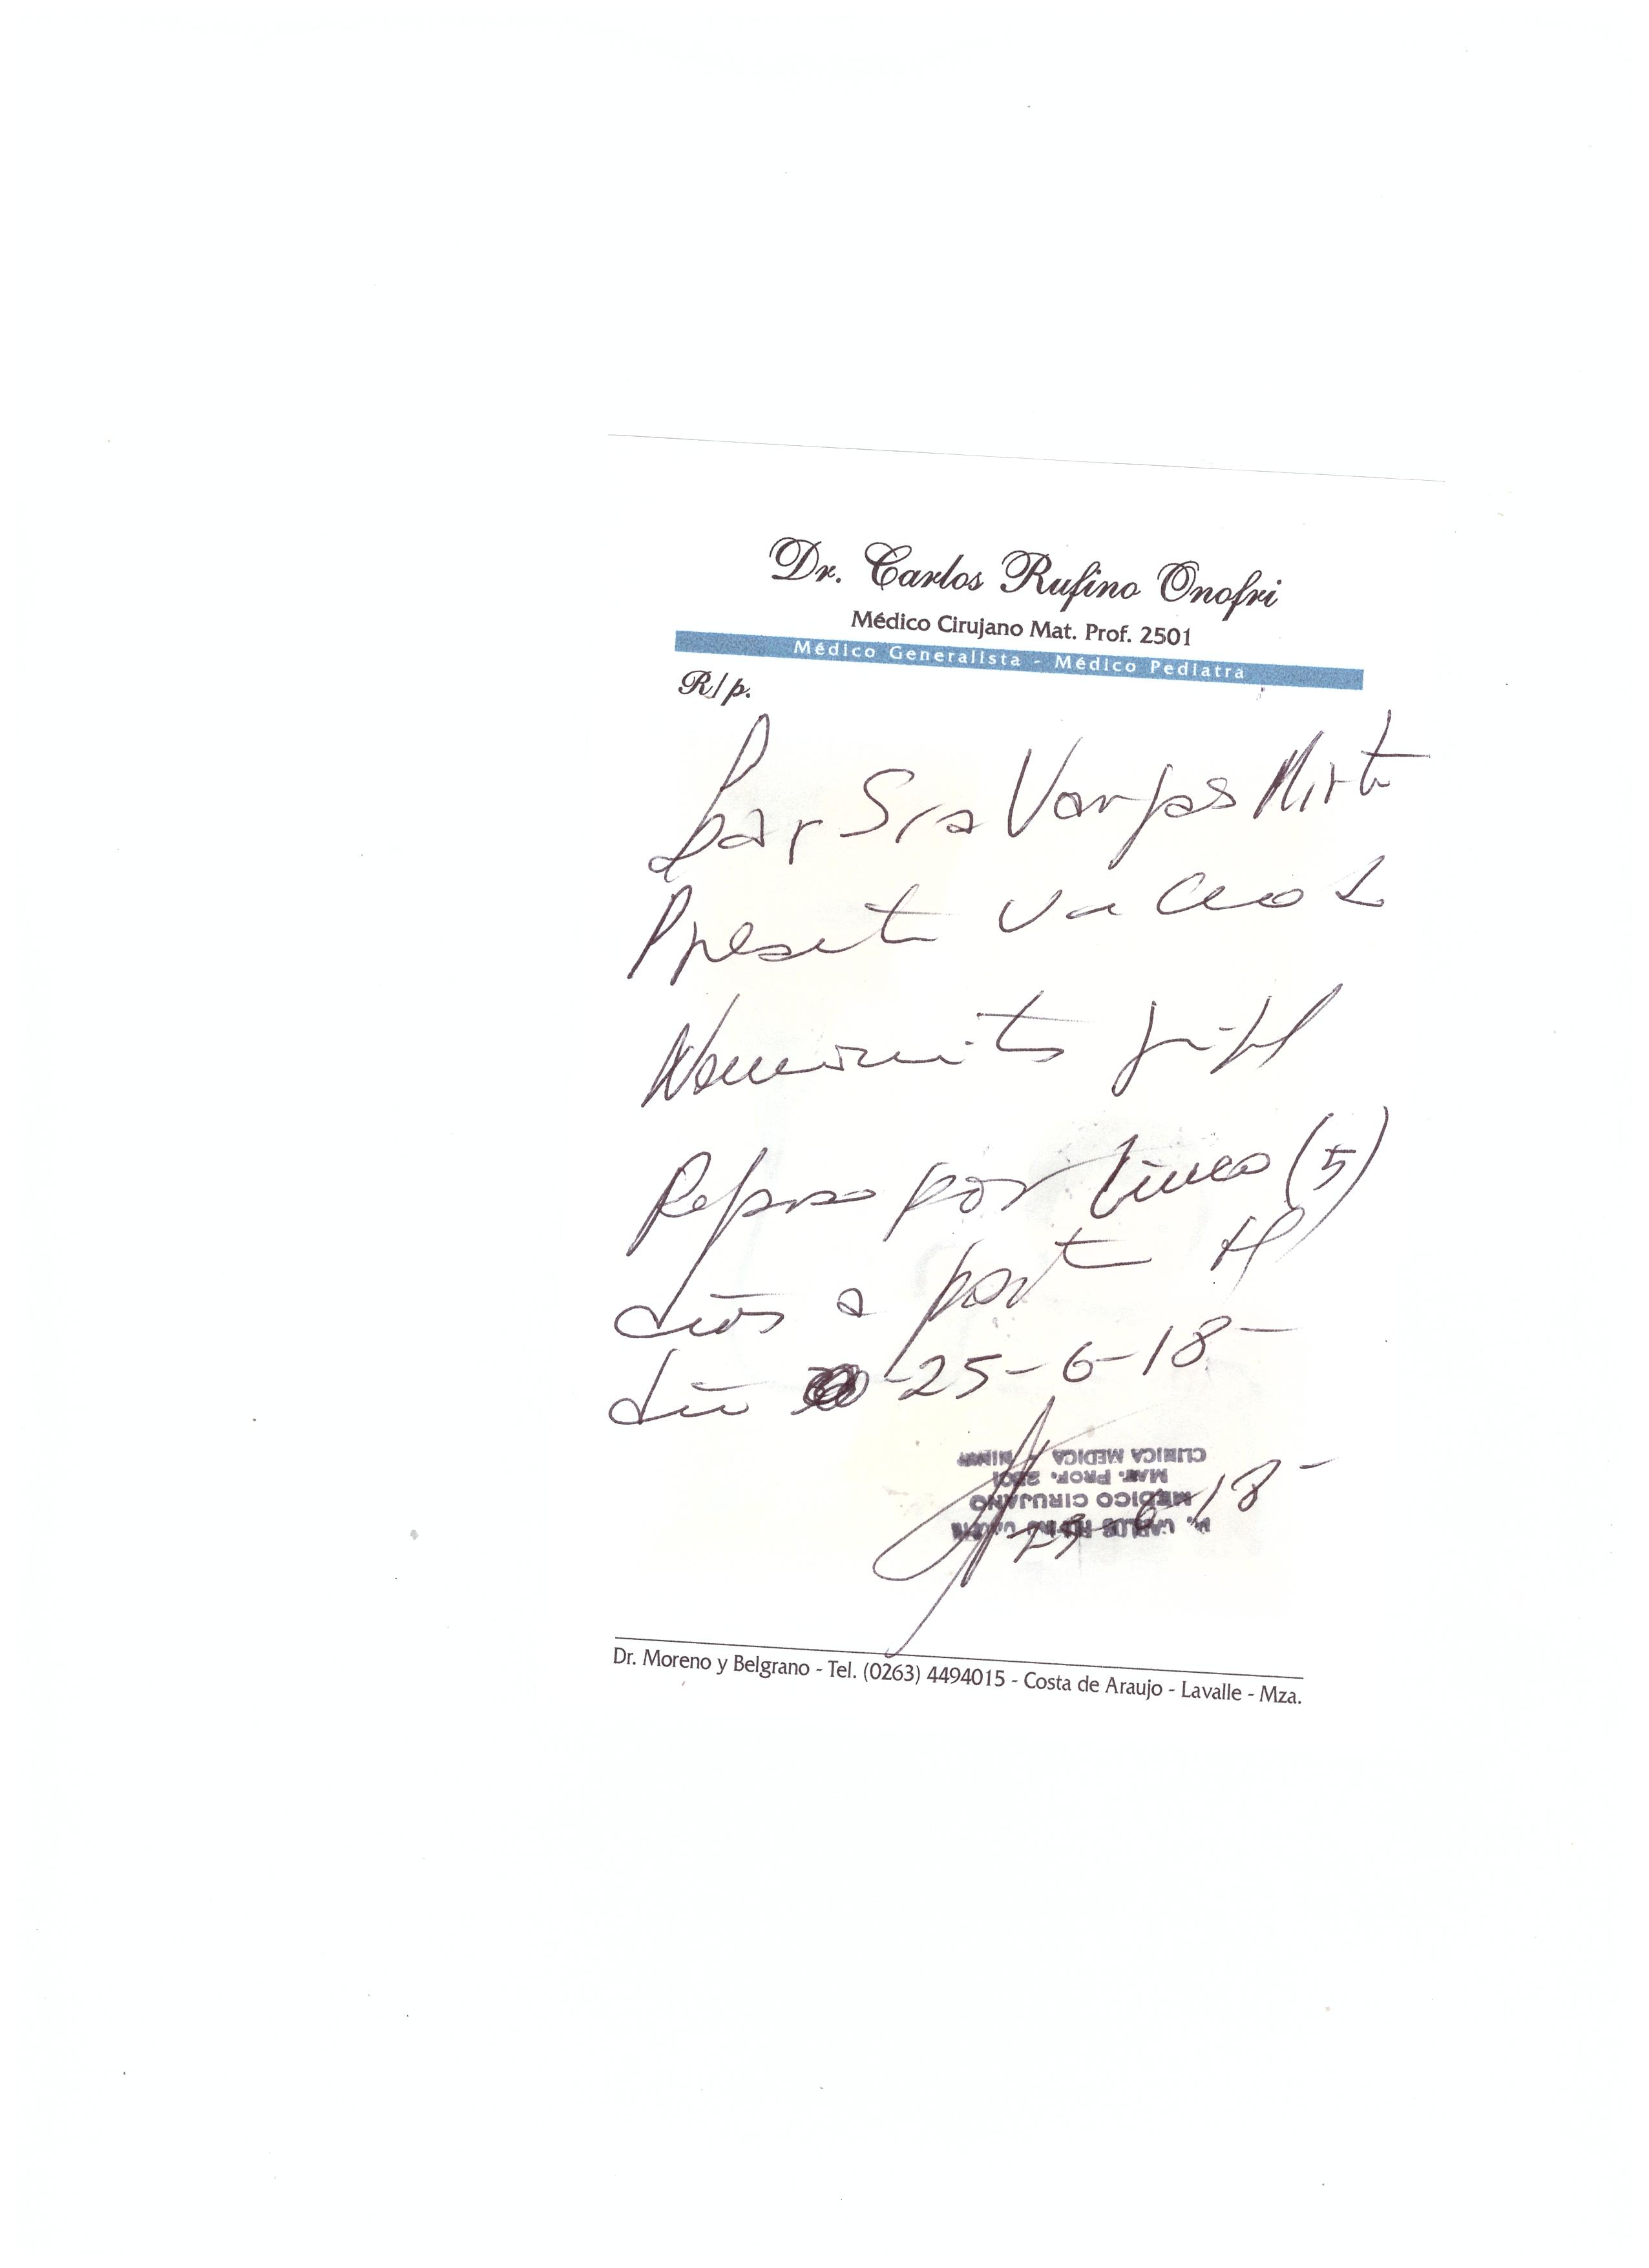 Dr. Carlos Rufino Onofri
Médico Cirujano Mat. Prof. 2501
Médico Generalista - Médico Pediatra
R/p.
Sra Vargas Mirta
Presenta
Reposo por cinco (5)
días a partir del
día 25-6-18-
CLINICA MEDICA
MAT. PROF. 2501
MEDICO CIRUJANO
25-6-18-
Dr. Moreno y Belgrano - Tel. (0263) 4494015 - Costa de Araujo - Lavalle - Mza.